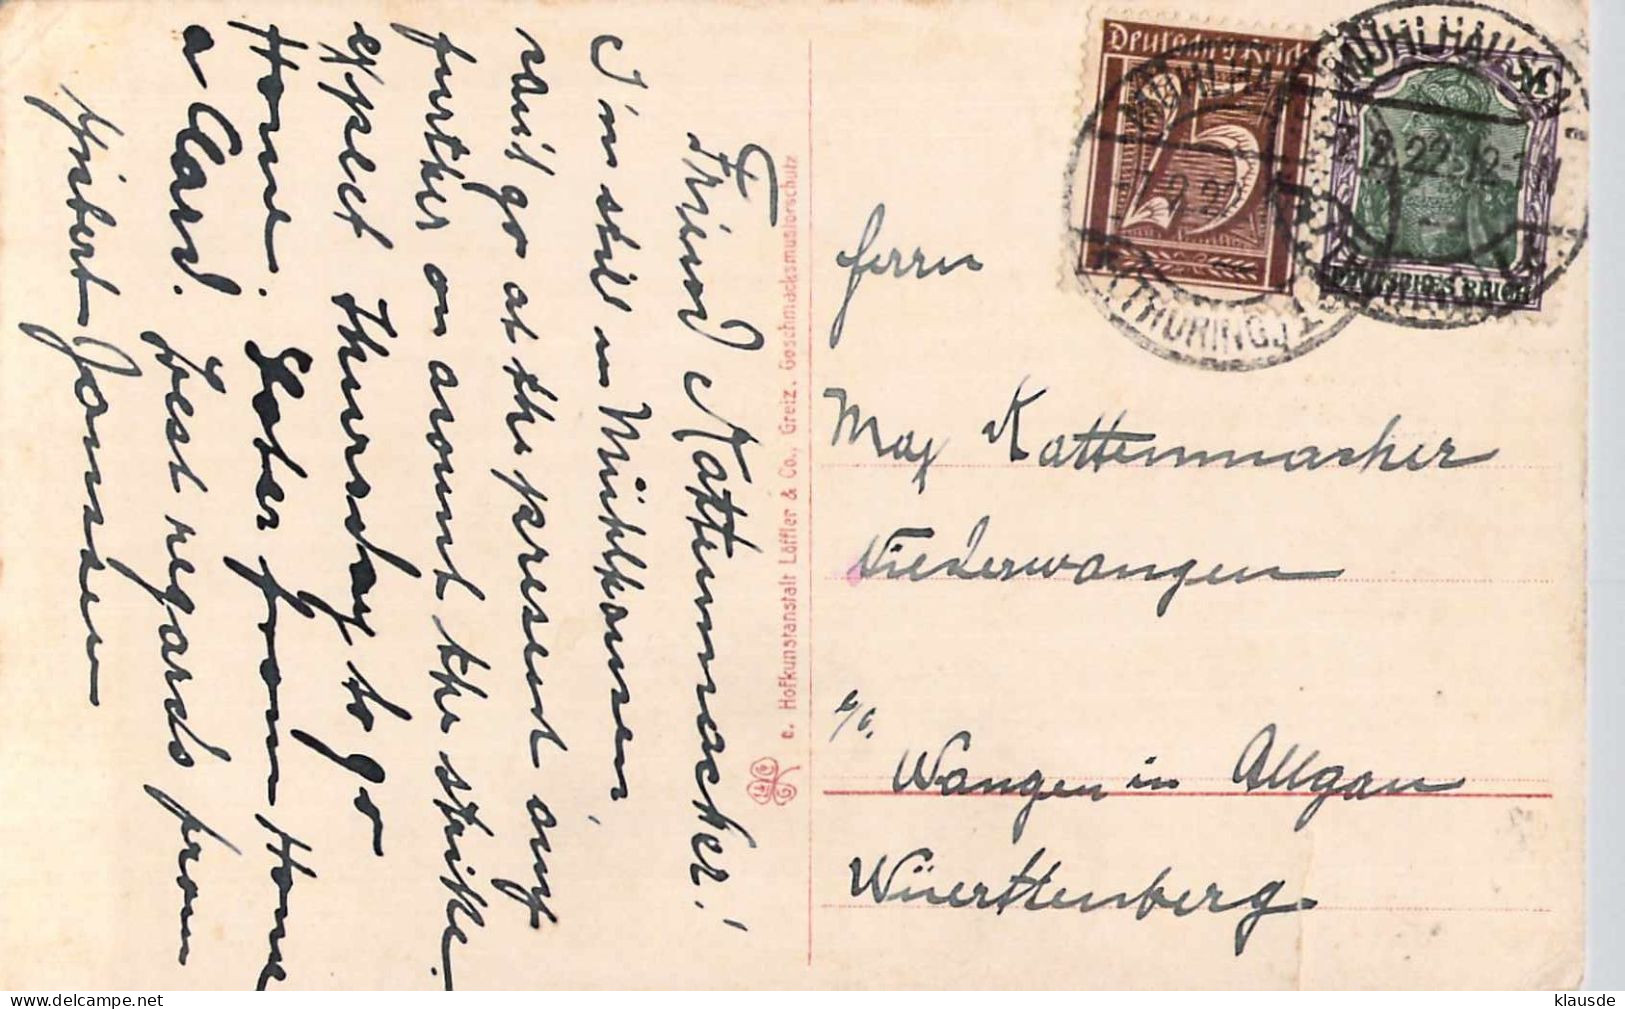 Friend Kattenmacher!
I'm still in Mühlhausen,
can't go at the present any
further on account the strike.
expect Thursday to go
Home. Later from Home
a Card. Best regards from
Janssen
c. Hofkunstanstalt Löffler & Co., Greiz. Geschmacksmusterschutz
Deutsches Reich
25
MÜHLHAUSEN
(THÜRING.)
DEUTSCHES REICH
MÜHLHAUSEN
7.2.22.12-1N
Herrn
Max Kattenmacher
Niederwangen
Wangen in Allgau
Wüerttenberg.
klausde